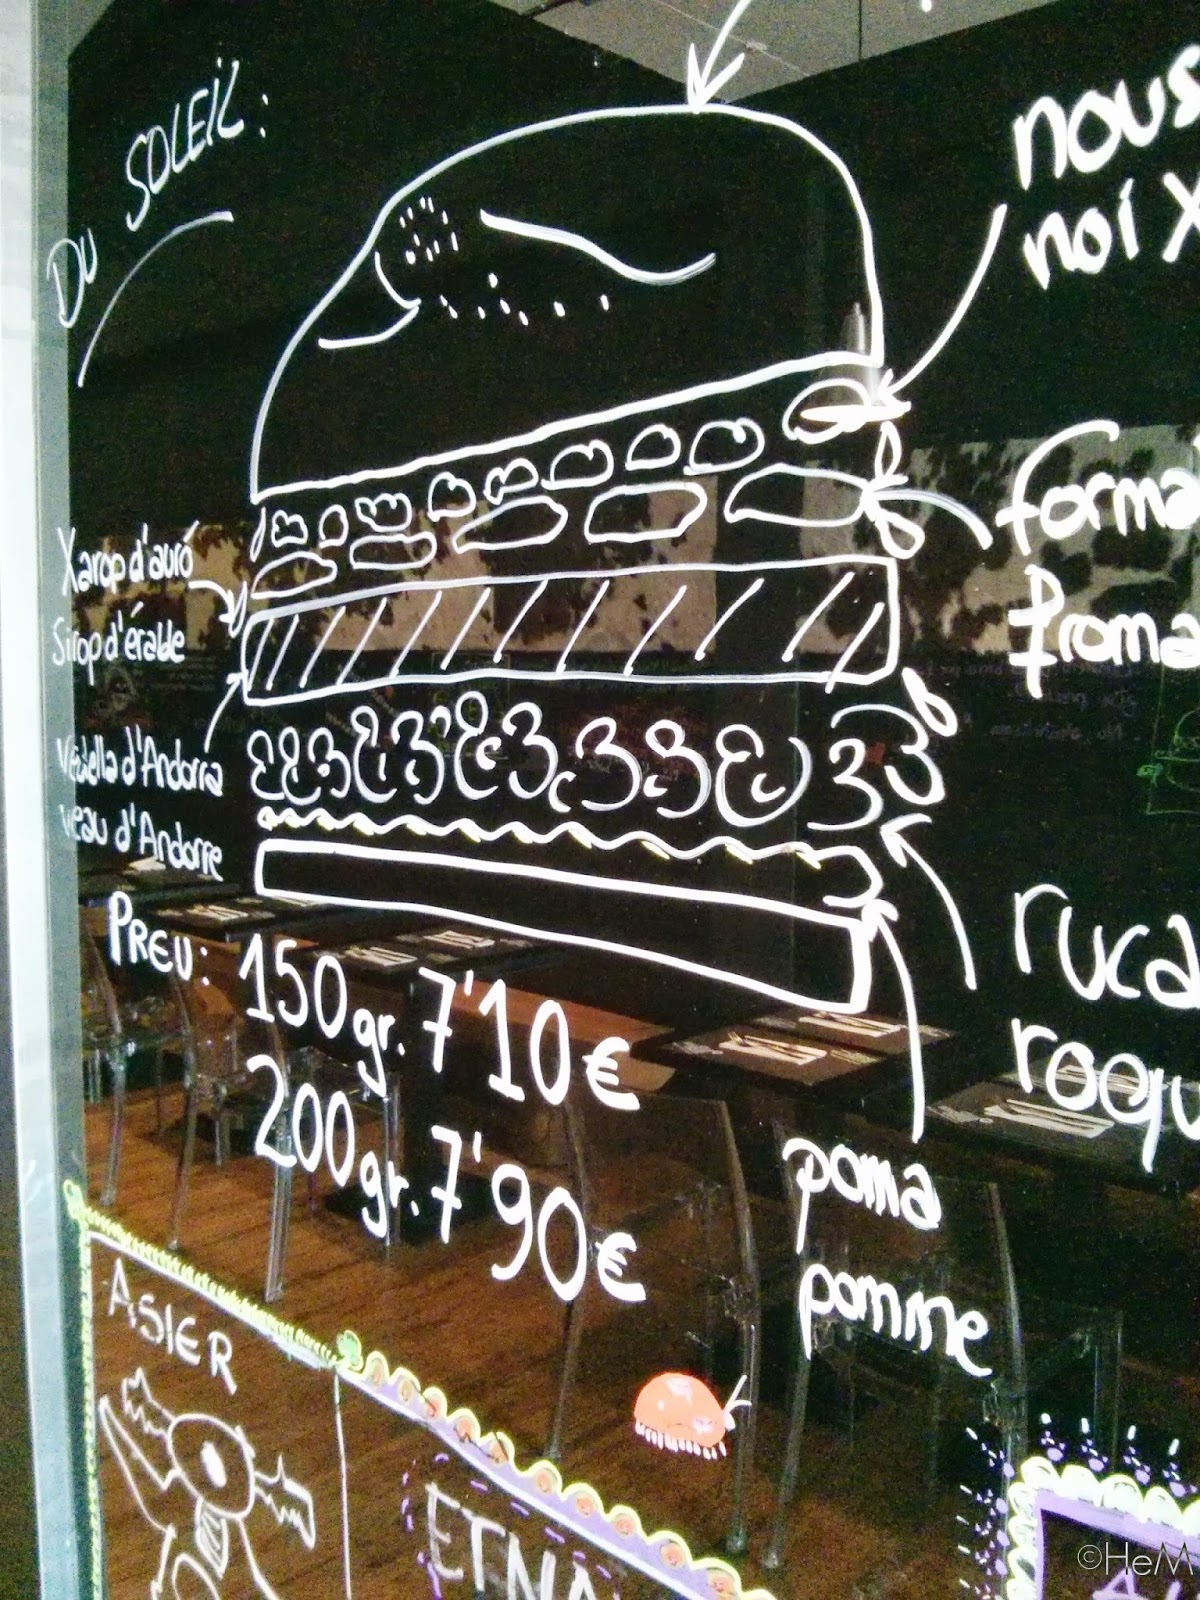 DU SOLEIL:
nous
noi
Xarop d'auró
Sirop d'érable
Vedella d'Andorra
veau d'Andorre
PREU: 150gr. 7'10€
200gr. 7'90€
poma
pomme
ASIER
ETNA
©HeM